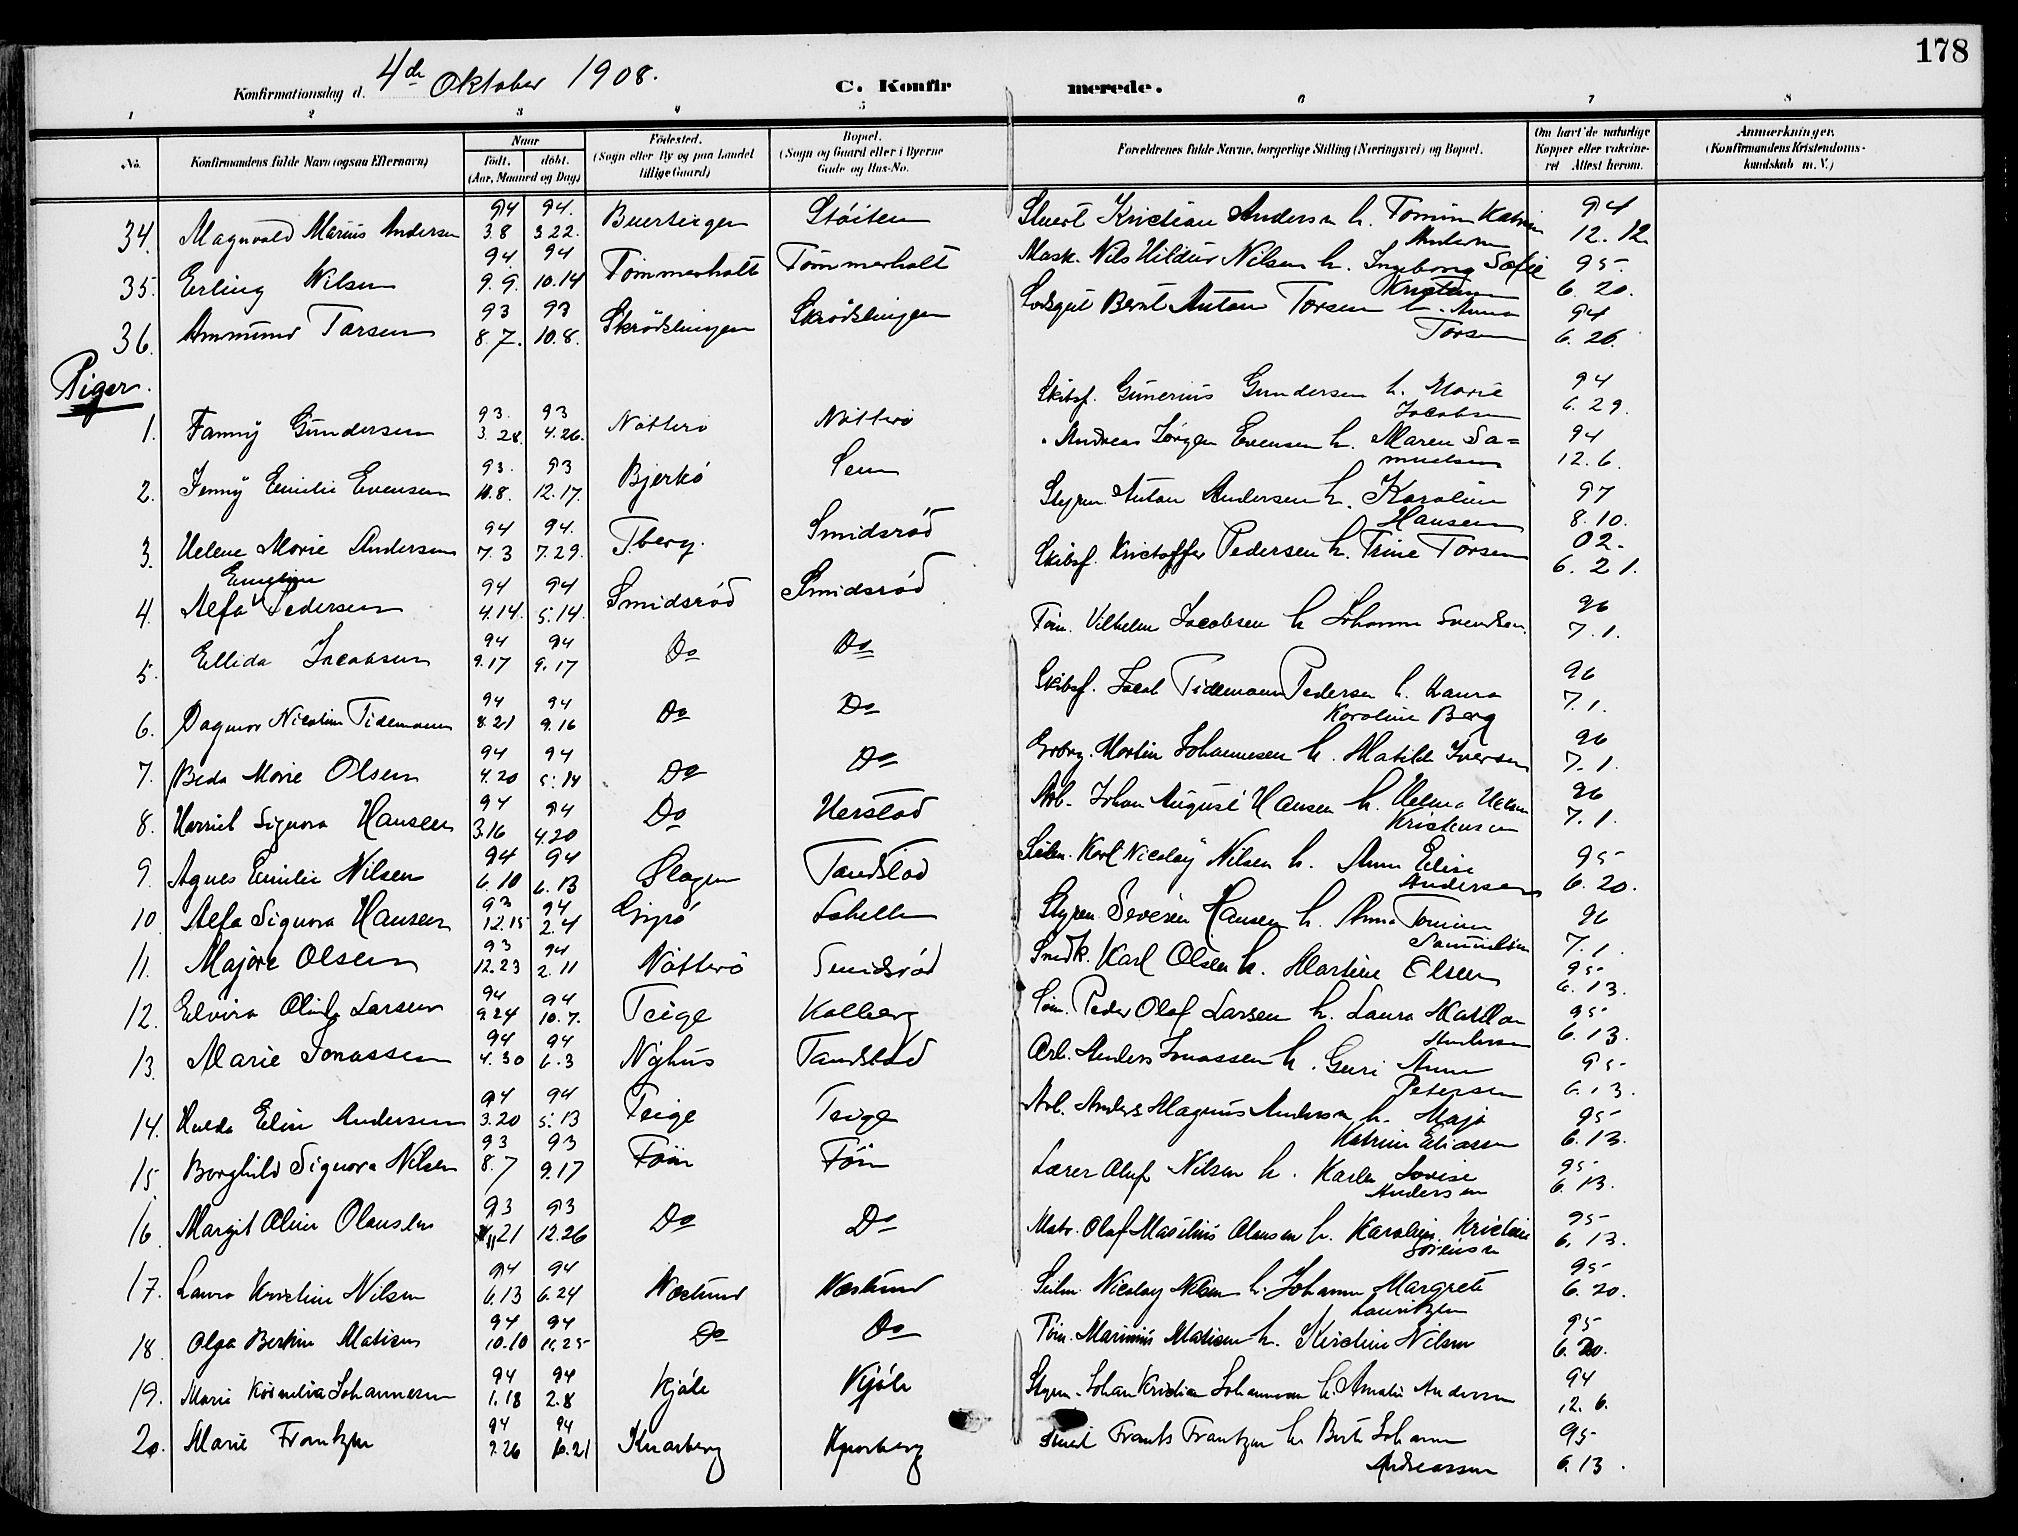 178
Konfirmationsdag d. 4de Oktober 1908. C. Konfirmerede.
1 2 3 4 5 6 7 8
No. Konfirmandens fulde Navn (ogsaa Efternavn) Naar født. døbt. (Aar, Maaned og Dag) Fødested. (Sogn eller By og paa Landet tillige Gaard) Bopæl. (Sogn og Gaard eller i Byerne Gade og Hus-No. Forældrenes fulde Navne, borgerlige Stilling (Næringsvei) og Bopæl. Om havt de naturlige Kopper eller vakcineret Attest herom. Anmærkninger. (Konfirmandens Kristendomskundskab m. V.)
34. Magnvald Marius Andersen 94 3.8 94. 3.22. Støiten Kristian Andersen h. Tomine Katrin Andersen 94 12.12.
35. Erling Nilsen 94 9.9. 94 10.14 Tømmerholt Tømmerholt Mask. Nils Hildur Nilsen h. Ingeborg Sofie Kristensen 95. 6.20.
36. Ammund Torsen 93 8.7. 93 10.8. Skrødslingen Skrødslingen Bernt Anton Torsen h. Anna Torsen 94 6.26.
Piger.
1. Fanny Gundersen 93. 3.28. 93 4.26. Nøtterø Nøtterø Skibsf. Gunerius Gundersen h. Marie Jacobsen 94 6.29.
2. Jenny Emilie Evensen 93. 10.8. 93 12.17. Bjerkø Sem Andreas Jørgen Evensen h. Maren Samuelsen 94 12.6.
3. Helene Marie Andersen 94 7.3 94. 7.29. Tberg. Smidsrød Styrm. Anton Andersen h. Karoline Hansen 97 8.10.
4. Alfa Emelyn Pedersen 94 4.14. 94 5.14. Smidsrød Smidsrød Skibsf. Kristoffer Pedersen h. Trine Torsen 02. 6.21.
5. Ellida Jacobsen 94 9.17 94 9.17 Do Do Tøm. Vilhelm Jacobsen h Johanne Svendsen. 96 7.1.
6. Dagmar Nicoline Tidemann 94 8.21 94 9.16 Do Do Skibsf. Jacob Tidemann Pedersen h. Laura Karoline Berg 96 7.1.
7. Beda Marie Olsen 94 4.20 94 5.14 Do Do Morten Johannesen h. Matilde Iversen 96 7.1.
8. Harriet Signora Hansen 94 3.16 94 4.20 Do Herstad Arb. Johan August Hansen h. Helena Kristensen 96 7.1.
9. Agnes Emilie Nilsen 94 6.10 94 6.13 Slagen Tandstad Karl Nicolay Nilsen h. Anne Elise Andersen 95 6.20.
10. Alfa Signora Hansen 93 12.15 94 2.4 Gipø Styrm. Severin Hansen h. Anna Tomine Samuelsen 96 7.1.
11. Majore Olsen 93 12.23 94 2.11 Nøtterø Smidsrød Snedk. Karl Olsen h. Martine Olsen 95 6.13.
12. Elvira Olinda Larsen 94 9.24 94 10.7. Teige Kolberg Tøm. Peder Olaf Larsen h. Laura Andersen 95 6.13.
13. Marie Jonassen 94 4.30 94 6.3 Nyhus Tandstad Arb. Anders Jonassen h. Guri Anne Petersen 95 6.13.
14. Hulda Elise Andersen 94 3.20 94 5.13 Teige Teige Arb. Anders Magnus Andersen h. Maja Katrine Eliassen 95 6.13.
15 Borghild Signora Nilsen 93 8.7 93 9.17 Føin Føin Lærer Oluf Nilsen h. Karla Lovise Andersen 95 6.13.
16. Margit Oline Olausen 93 11 21 93 12.26 Do Do Matr. Olaf Masilius Olausen h. Karoline Kristine Sørensen 95 6.13.
17. Laura Kristine Nilsen 94 6.13 94 6.24 Næstund Næstund Nicolay Nilsen h. Johanne Margrete Lauritzen 95 6.20.
18. Olga Bertine Matisen 94 10.10 94 11.25 Do Do Tøm. Marinius Matisen h. Kirstine Nilsen 95 6.20.
19. Marie Kornelia Johannesen 94 1.18 94 2.8 Kjøle Kjøle Styrm. Johan Kristian Johannesen h. Amalie Andersen 94 12.6.
20. Marie Frantzen 94 9.26 94 10.21 Knarberg Knarberg Smed Frants Frantzen h. Berte Johanne Andreassen 95 6.13.